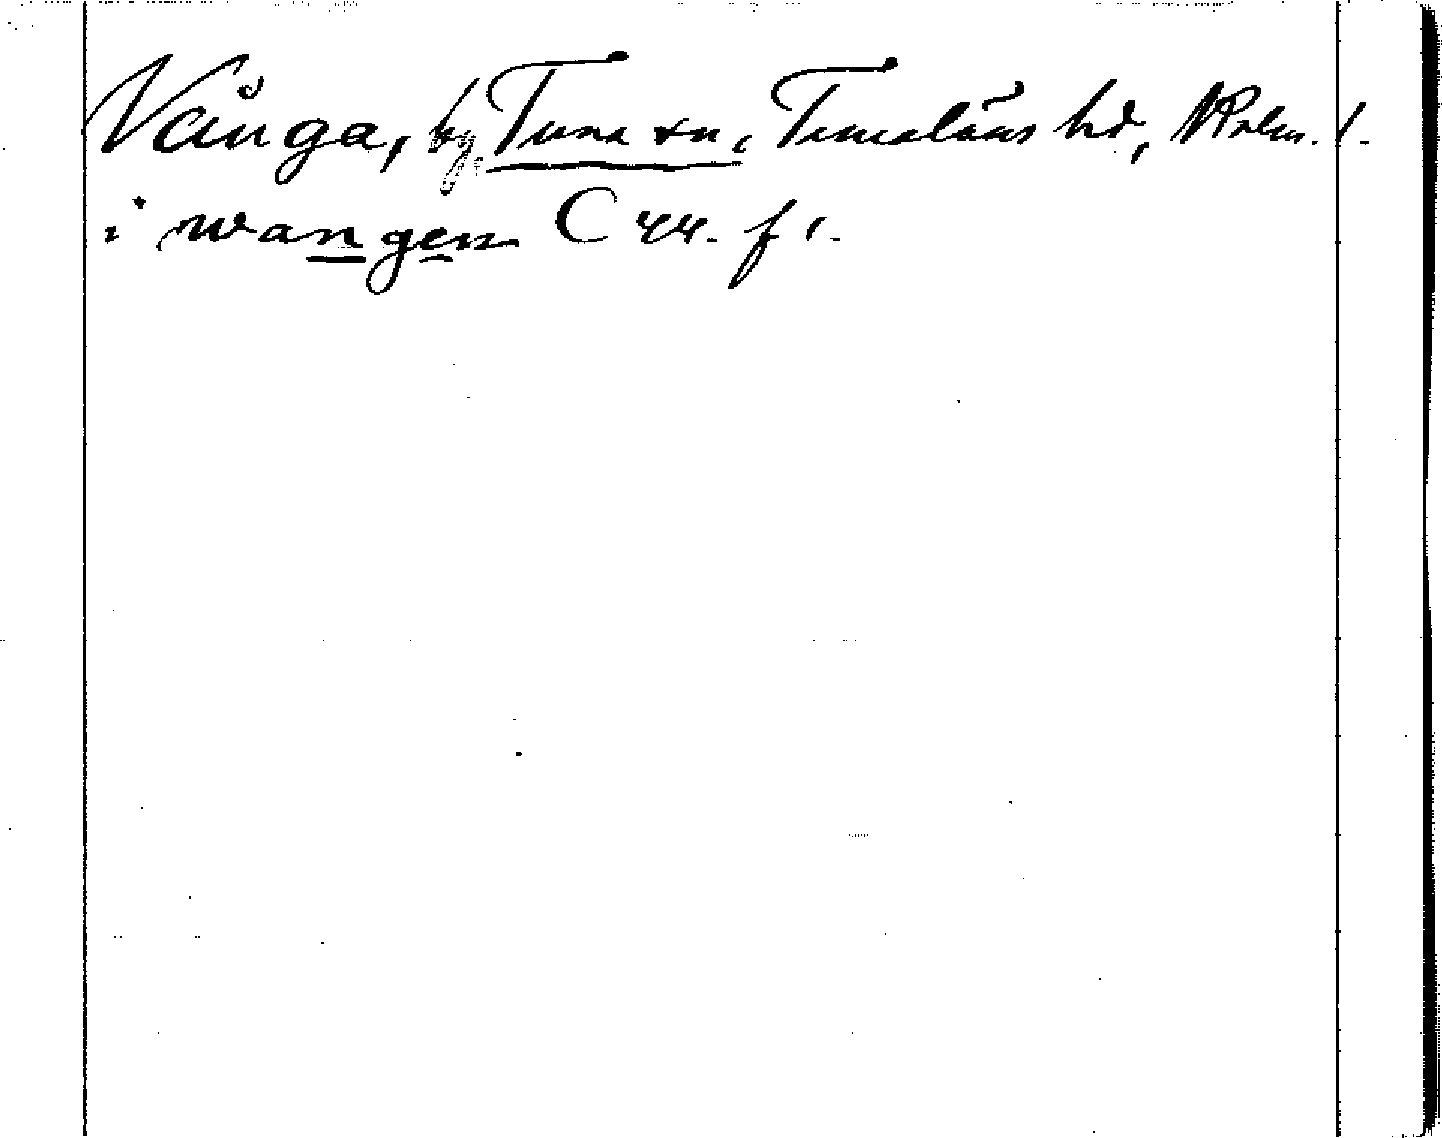 Vånga, by, Tuna sn, Tunaläns hd, Kalm. l.
i wangen C 44. f 1.